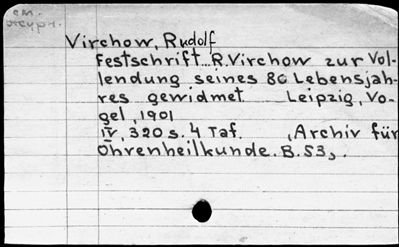 см.
Virchow, Rudolf
Festschrift... R. Virchow zur Vol-
lendung seines 80 Lebensjah-
res gewidmet Leipzig, Vo-
gel, 1901
IV, 320 s. 4 Taf. , Archiv für
Ohrenheilkunde. B. 53,.